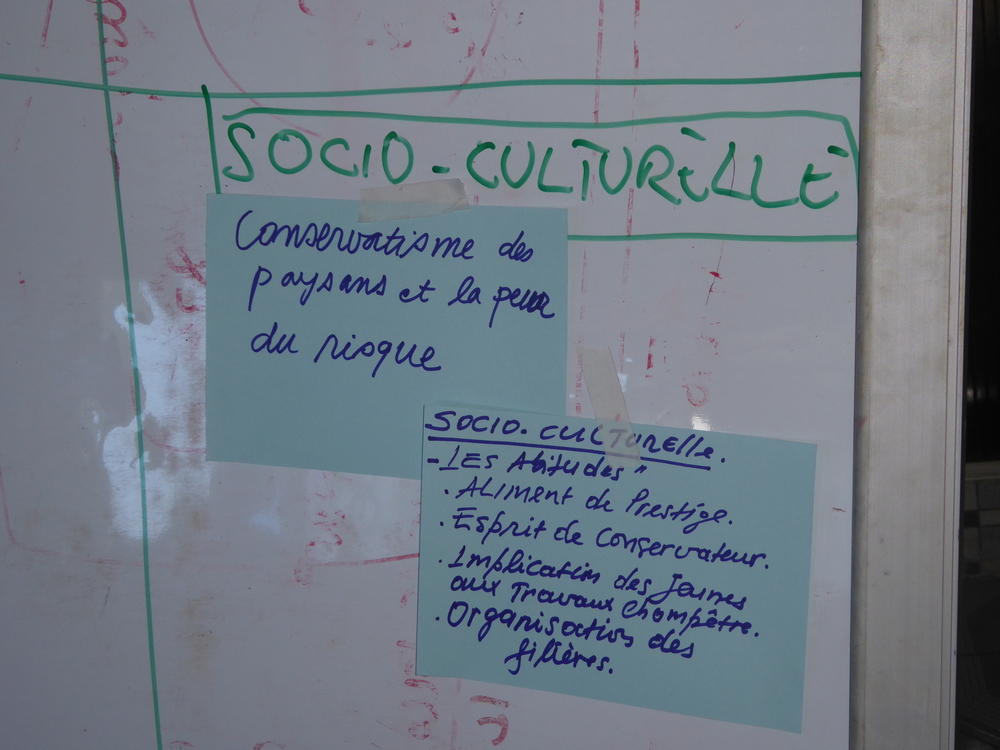 SOCIO-CULTURELLE
Conservatisme des
paysans et la peur
du risque
SOCIO. CULTURElle.
- LES Abitudes "
. ALIMENT de Prestige.
. Esprit de Conservateur.
. Implication des Jeunes
aux Travaux Champêtre.
. Organisation des
filières.